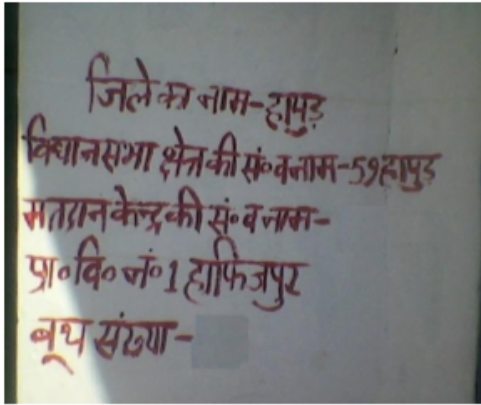 जिले का नाम-हापुड़
विधानसभा क्षेत्र की सं० व नाम-59हापुड़
मतदान केन्द्र की सं० व नाम-
प्रा० वि० नं० 1 हाफिजपुर
बूथ संख्या-